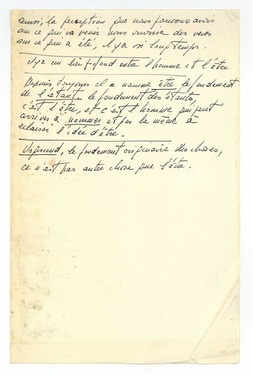 ainsi, la perception que nous pouvons avoir
sur ce qui va venir nous renvoie des vues
sur ce qui a été, il y a si longtemps.
Il y a un lien profond entre l'homme et l'être
nommé être le fondement
de l'étant, le fondement des étants,
c'est l'être, et c'est l'homme qui peut
arriver à nommer et par là même à
éclaircir l'idée d'être.
le fondement originaire des choses,
ce n'est pas autre chose que l'être.